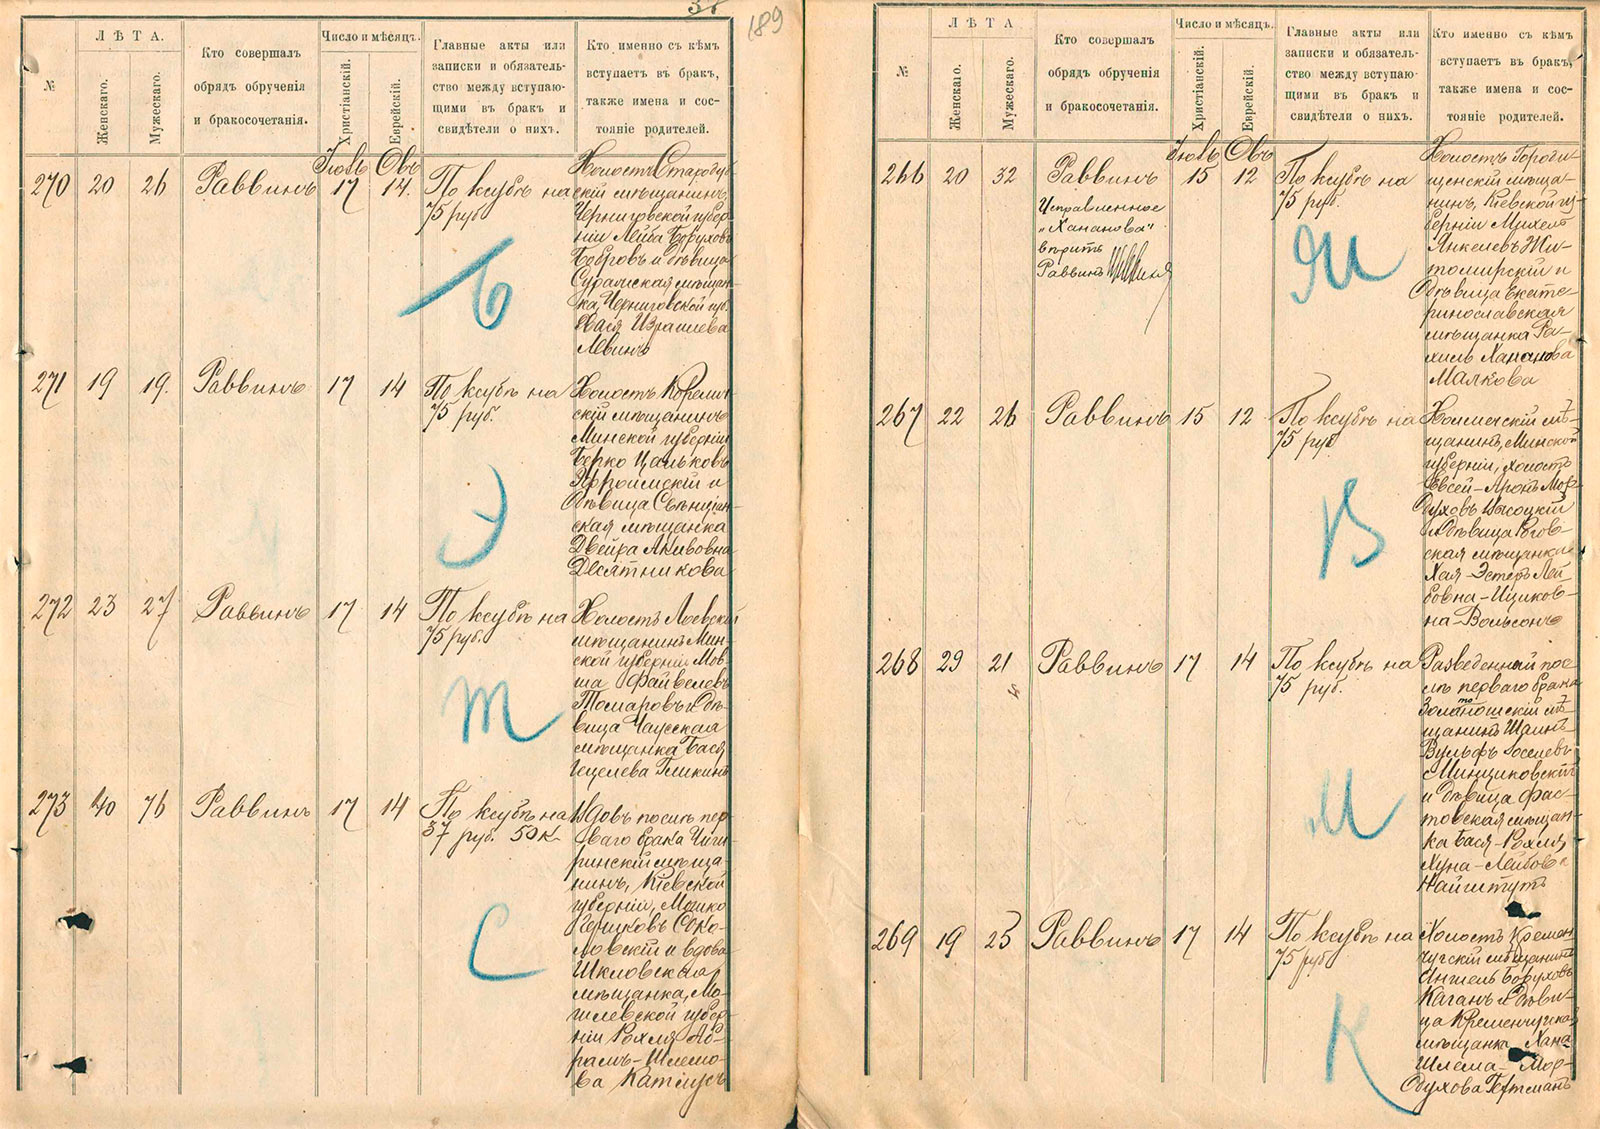 38
189
№
ЛѢТА.
Женскаго.
Мужескаго.
Кто совершалъ
обрядъ обрученія
и бракосочетанія.
Число и мѣсяцъ.
Христіанскій.
Еврейскій.
Главные акты или
записки и обязатель-
ство между вступаю-
щими въ бракъ и
свидѣтели о нихъ.
Кто именно съ кѣмъ
вступаетъ въ бракъ,
также имена и сос-
тояніе родителей.
Іюль Овъ
270 20 26 Раввинъ 17 14. По ксубѣ на
75 руб.
Холостъ Стародуб-
скій мѣщанинъ,
Черниговской губер-
ніи Лейба Боруховъ
Бобровъ и дѣвица
Суражская мѣщан-
ка, Черниговской губ.
Хася Израилева
Левинъ
Б
271 19 19. Раввинъ 17 14 По ксубѣ на
75 руб.
Холостъ Корелич-
скій мѣщанинъ
Минской губерніи
Берко Цальковъ
Эфроимскій и
дѣвица Свѣнцян-
ская мѣщанка
Двейра Акивовна
Десятникова
Э
272 23 27 Раввинъ 17 14 По ксубѣ на
75 руб.
Холостъ Лоевскій
мѣщанинъ Мин-
ской губерніи Мов-
ша Файвелевъ
Томаровъ и дѣ-
вица Чаусская
мѣщанка Бася
Гецелева Гликинъ
т
273 40 76 Раввинъ 17 14 По ксубѣ на
37 руб. 50 к.
Вдовъ послѣ пер-
ваго брака Чиги-
ринскій мѣща-
нинъ, Кіевской
губерніи, Мошко
Герцковъ Соко-
ловскій и вдова
Шкловская
мѣщанка, Мо-
гилевской губер-
ніи Рохля Аб-
рамъ-Шлемо-
ва
С
№
ЛѢТА.
Женскаго.
Мужескаго.
Кто совершалъ
обрядъ обрученія
и бракосочетанія.
Число и мѣсяцъ.
Христіанскій.
Еврейскій.
Главные акты или
записки и обязатель-
ство между вступаю-
щими въ бракъ и
свидѣтели о нихъ.
Кто именно съ кѣмъ
вступаетъ въ бракъ,
также имена и сос-
тояніе родителей.
Іюль Овъ
266 20 32 Раввинъ 15 12 По ксубѣ на
75 руб.
Исправленное
"Хананова"
вѣрить
Раввинъ
Холостъ Городи-
щенскій мѣща-
нинъ, Кіевской гу-
берніи Михель
Янкелевъ Жи-
томирскій и
дѣвица Екате-
ринославская
мѣщанка Ра-
хиль Хананова
Малкова
267 22 26 Раввинъ 15 12 По ксубѣ на
75 руб.
Холмечскій мѣ-
щанинъ, Минской
губерніи, холостъ
Евсей-Аронъ Мор-
духовъ Высоцкій
и дѣвица Рогов-
ская мѣщанка
Хая-Эстеръ Лей-
бовна-Ицков-
на-Вольсонъ
В
268 29 21 Раввинъ 17 14 По ксубѣ на
75 руб.
Разведенный пос-
лѣ перваго брака
Золотоношскій мѣ-
щанинъ
Вульфъ Іоселевъ
Минциковскій
и дѣвица Фас-
товская мѣщан-
ка Бася-Рохля
Хуна-Лейбова
Найштутъ
И
269 19 25 Раввинъ 17 14 По ксубѣ на
75 руб.
Холостъ Кремен-
чугскій мѣщанинъ
Аншель Боруховъ
Каганъ и дѣви-
ца Кременчугская
мѣщанка Хана
Шлема-Мор-
духова Гертманъ
К